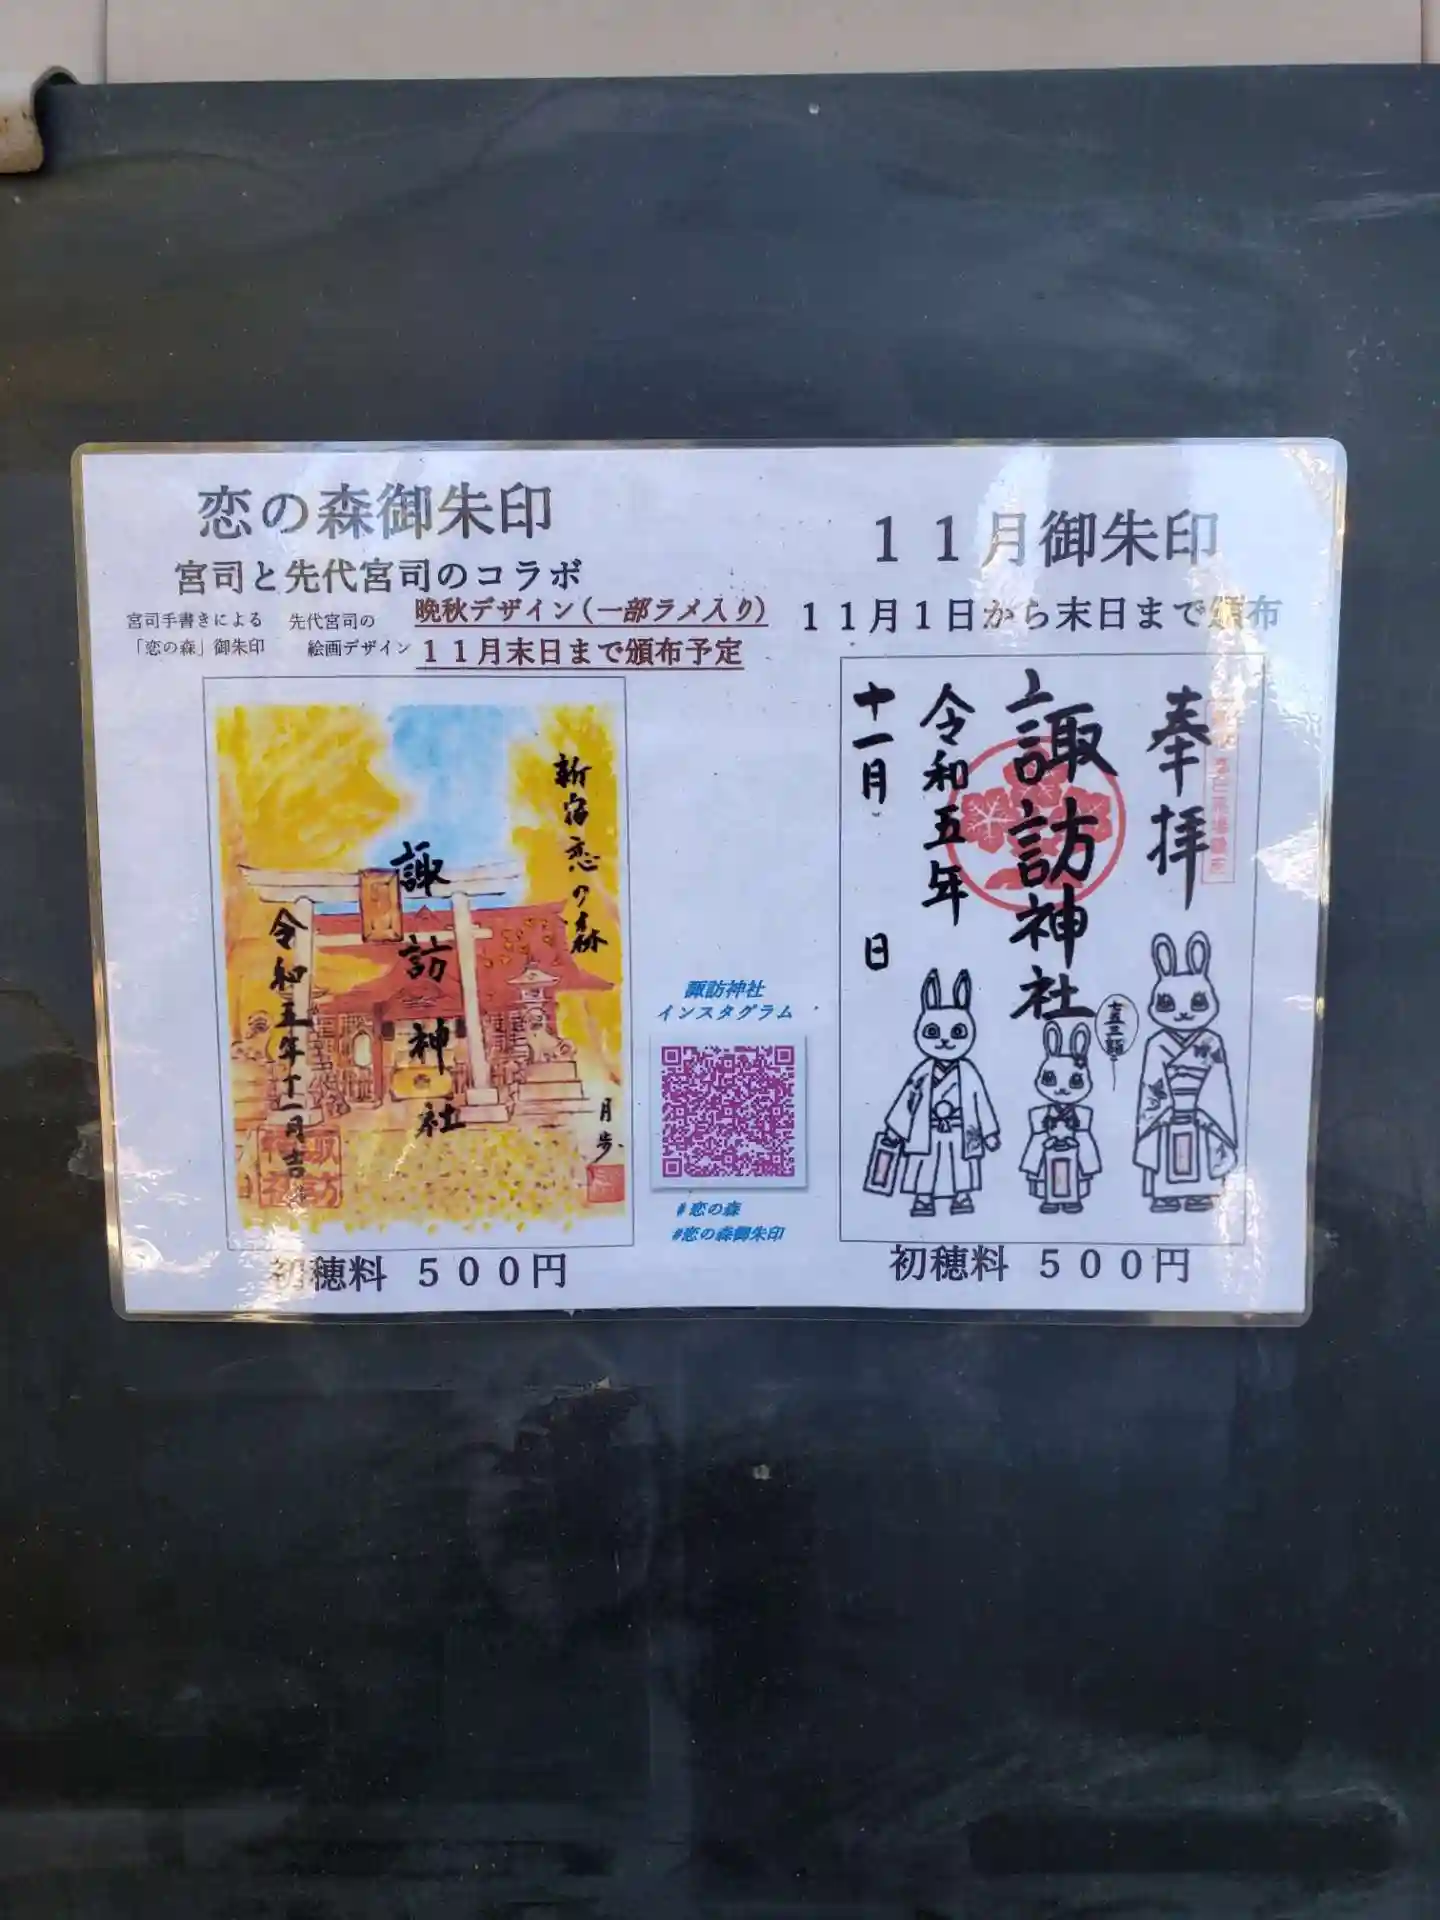 恋の森御朱印
宮司と先代宮司のコラボ
宮司手書きによる
「恋の森」御朱印
先代宮司の
絵画デザイン
晩秋デザイン(一部ラメ入り)
11月末日まで頒布予定
新宿恋の森
諏訪神社
令和五年十一月吉
月歩
諏訪神社
初穂料 500円
諏訪神社
インスタグラム
#恋の森
#恋の森御朱印
11月御朱印
11月1日から末日まで頒布
奉拝
諏訪神社
令和五年
十一月 日
七五三詣
初穂料 500円